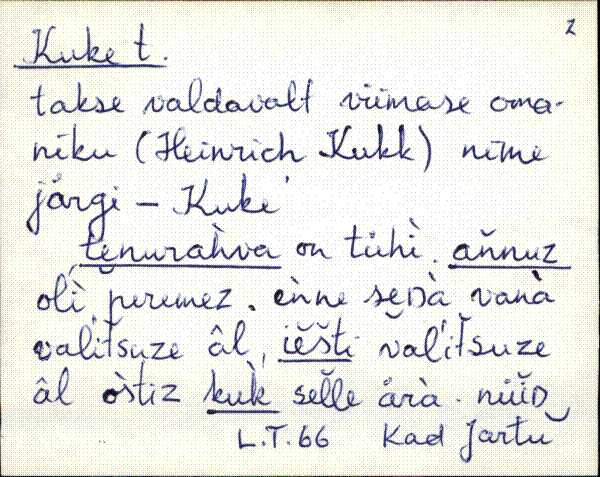 2
Kuke t.
takse valdavalt viimase oma-
niku (Heinrich Kukk) nime
järgi – Kuke
tènurahva on tühì. aňnuz
olì peremez. ènne seDà vanà
valitšuze âl, iěšti val'itšuze
âl òstiz kuk̀ selle ärà. nüiD
L.T. 66 Kad Jartu